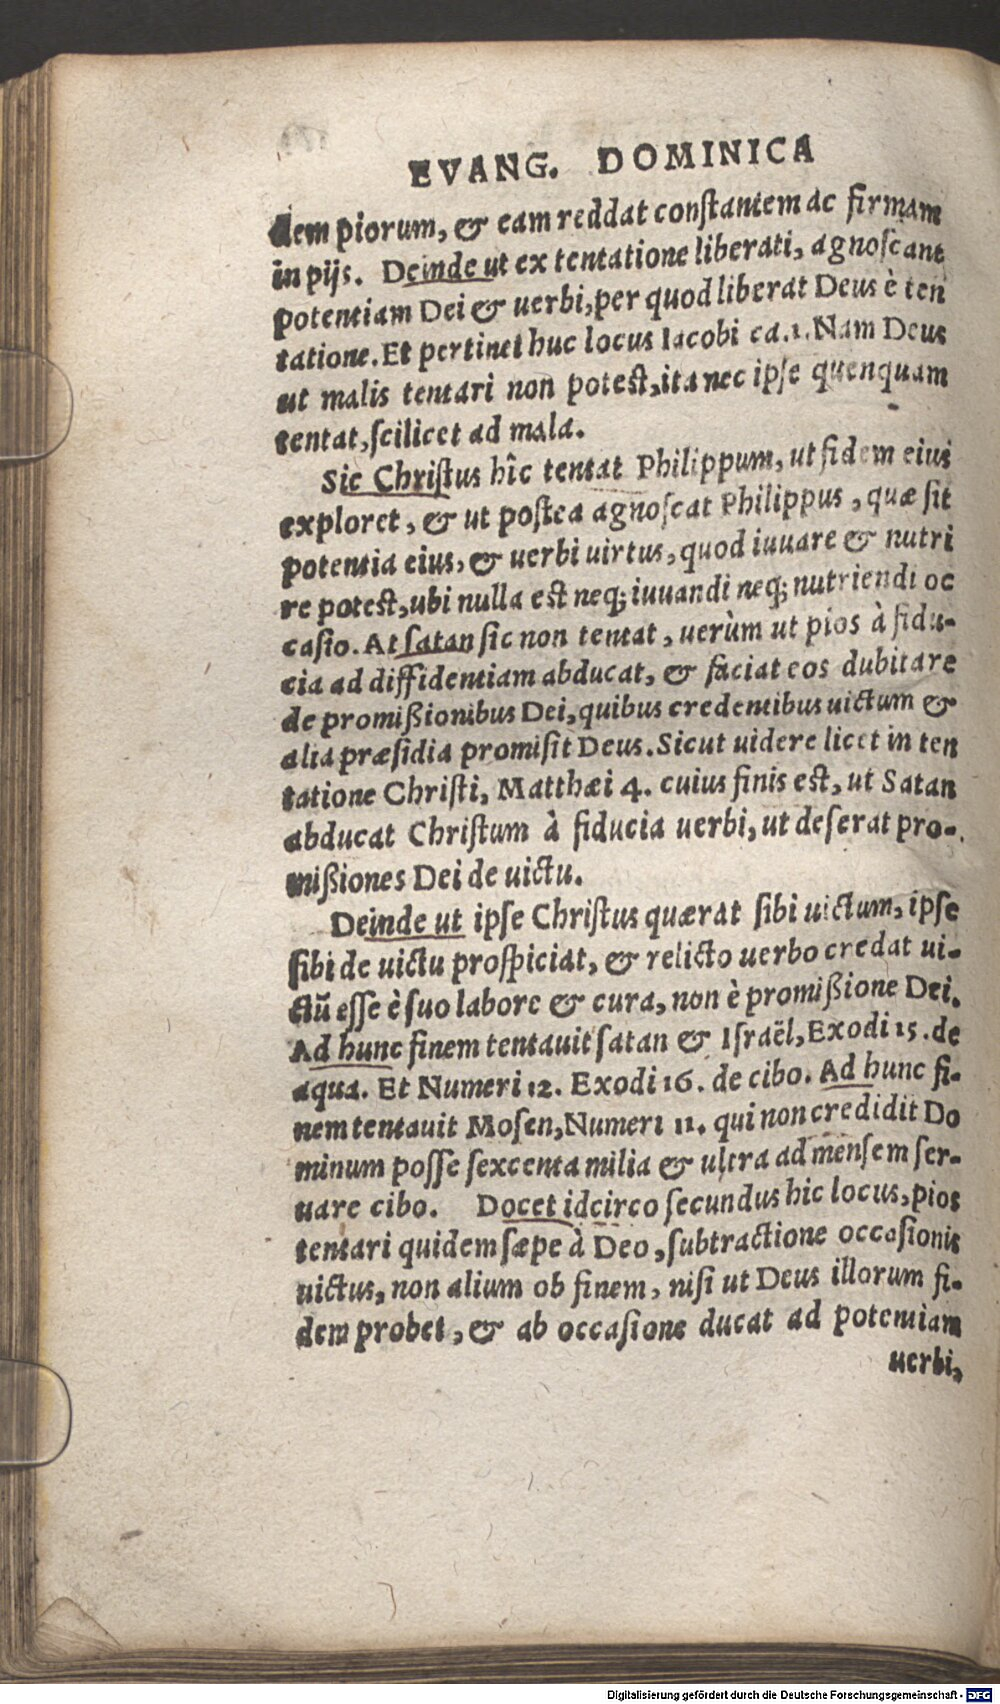 EVANG. DOMINICA
dem piorum, & eam reddat conſtantem ac firmam
in pijs. Deinde ut ex tentatione liberati, agnoſcant
potentiam Dei & uerbi, per quod liberat Deus è ten
tatione. Et pertinet huc locus Iacobi ca.1. Nam Deus
ut malis tentari non poteſt, ita nec ipſe quenquam
tentat, ſcilicet ad mala.
Sic Chriſtus hîc tentat Philippum, ut fidem eius
exploret, & ut poſtea agnoſcat Philippus, quæ ſit
potentia eius, & uerbi uirtus, quod iuuare & nutri
re poteſt, ubi nulla eſt neq; iuuandi neq; nutriendi oc
caſio. At ſatan ſic non tentat, uerùm ut pios à fidu-
cia ad diffidentiam abducat, & faciat eos dubitare
de promißionibus Dei, quibus credentibus uictum &
alia præſidia promiſit Deus. Sicut uidere licet in ten
tatione Chriſti, Matthæi 4. cuius finis eſt, ut Satan
abducat Chriſtum à fiducia uerbi, ut deſerat pro-
mißiones Dei de uictu.
Deinde ut ipſe Chriſtus quærat ſibi uictum, ipſe
ſibi de uictu proſpiciat, & relicto uerbo credat ui-
ctũ eſſe è ſuo labore & cura, non è promißione Dei.
Ad hunc finem tentauit ſatan & Iſraël, Exodi 15. de
aqua. Et Numeri 12. Exodi 16. de cibo. Ad hunc fi-
nem tentauit Moſen, Numeri 11. qui non credidit Do
minum poſſe ſexcenta milia & ultra ad menſem ſer-
uare cibo. Docet idcirco ſecundus hic locus, pios
tentari quidem ſæpe à Deo, ſubtractione occaſionis
uictus, non alium ob finem, niſi ut Deus illorum fi-
dem probet, & ab occaſione ducat ad potentiam
uerbi,
Digitalisierung gefördert durch die Deutsche Forschungsgemeinschaft - DFG